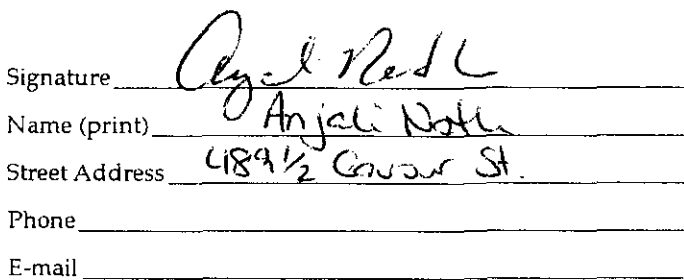 Signature
Name (print) Anjali Noth
Street Address 489 1/2 Cavour St.
Phone
E-mail